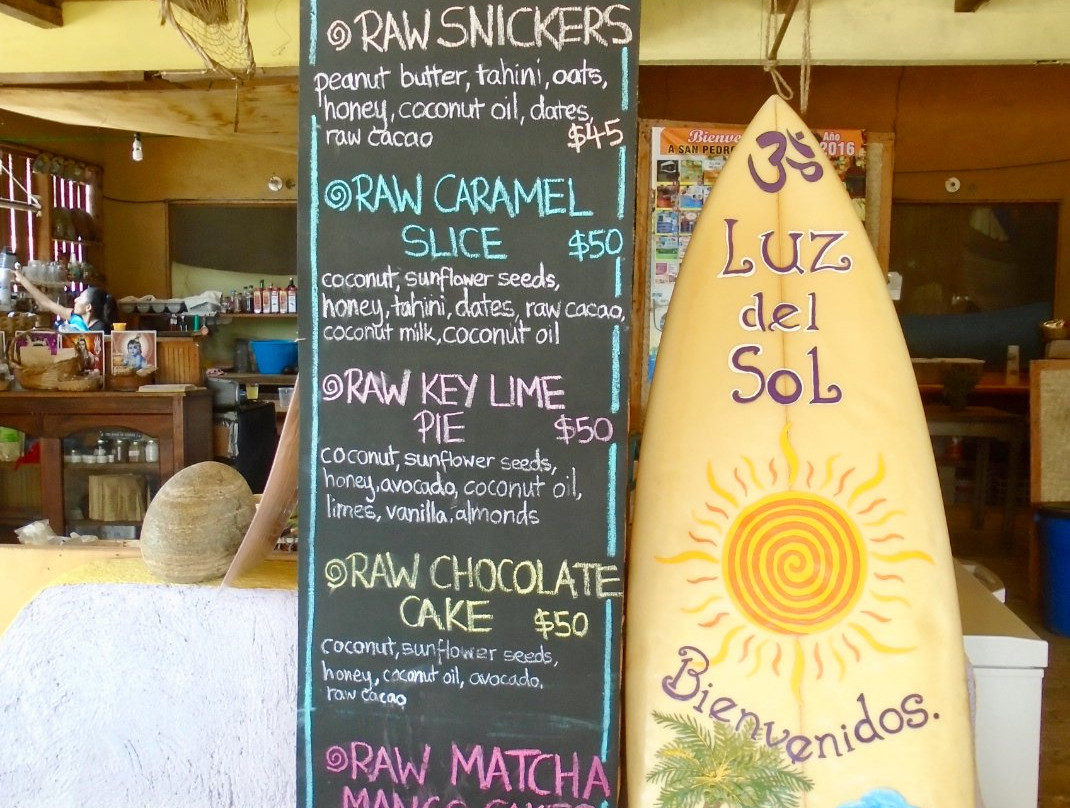 RAW SNICKERS
peanut butter, tahini, oats,
honey, coconut oil, dates,
raw cacao $45
RAW CARAMEL
SLICE $50
coconut, sunflower seeds,
honey, tahini, dates, raw cacao,
coconut milk, coconut oil
RAW KEY LIME
PIE $50
coconut, sunflower seeds,
honey, avocado, coconut oil,
limes, vanilla, almonds
RAW CHOCOLATE
CAKE $50
coconut, sunflower seeds,
honey, coconut oil, avocado,
raw cacao
RAW MATCHA
MANGO
Año
A SAN PEDRO 2016
ॐ
Luz
del
SoL
Bienvenidos.